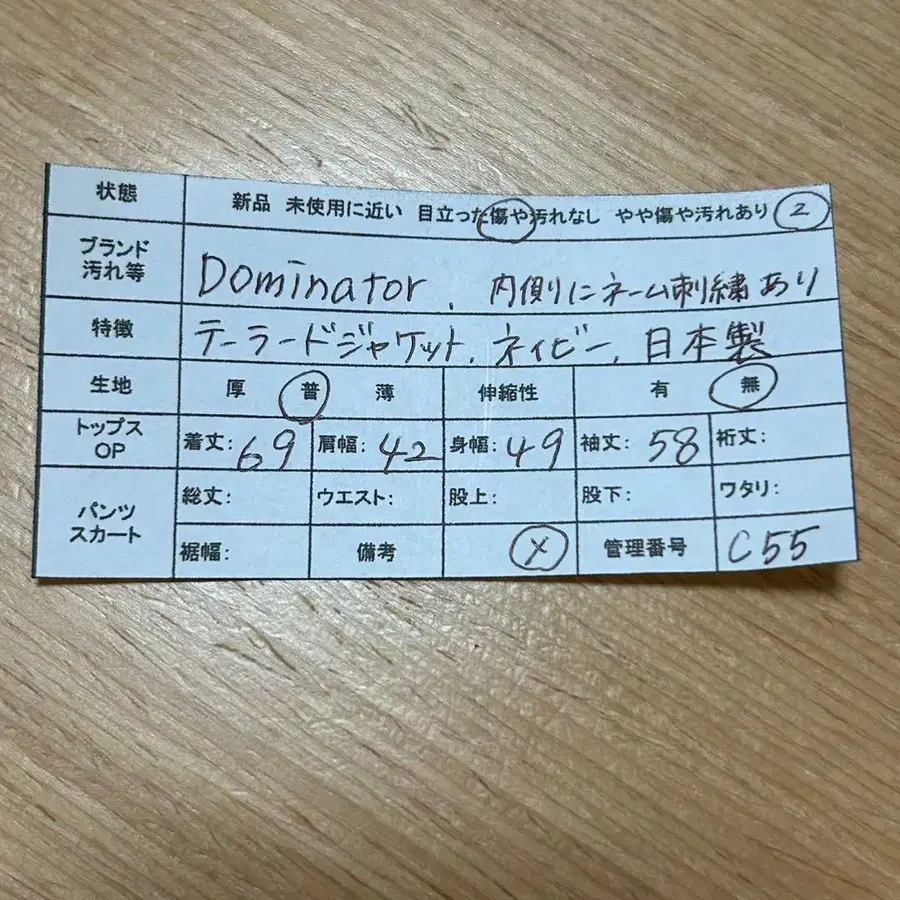 状態 新品 未使用に近い 目立った傷や汚れなし やや傷や汚れあり 2
ブランド
汚れ等 Dominator. 内側にネーム刺繍あり
特徴 テーラードジャケット. ネイビー. 日本製
生地 厚 普 薄 伸縮性 有 無
トップス
OP 着丈: 69 肩幅: 42 身幅: 49 袖丈: 58 裄丈:
パンツ
スカート 総丈: ウエスト: 股上: 股下: ワタリ:
裾幅: 備考 X 管理番号 C55